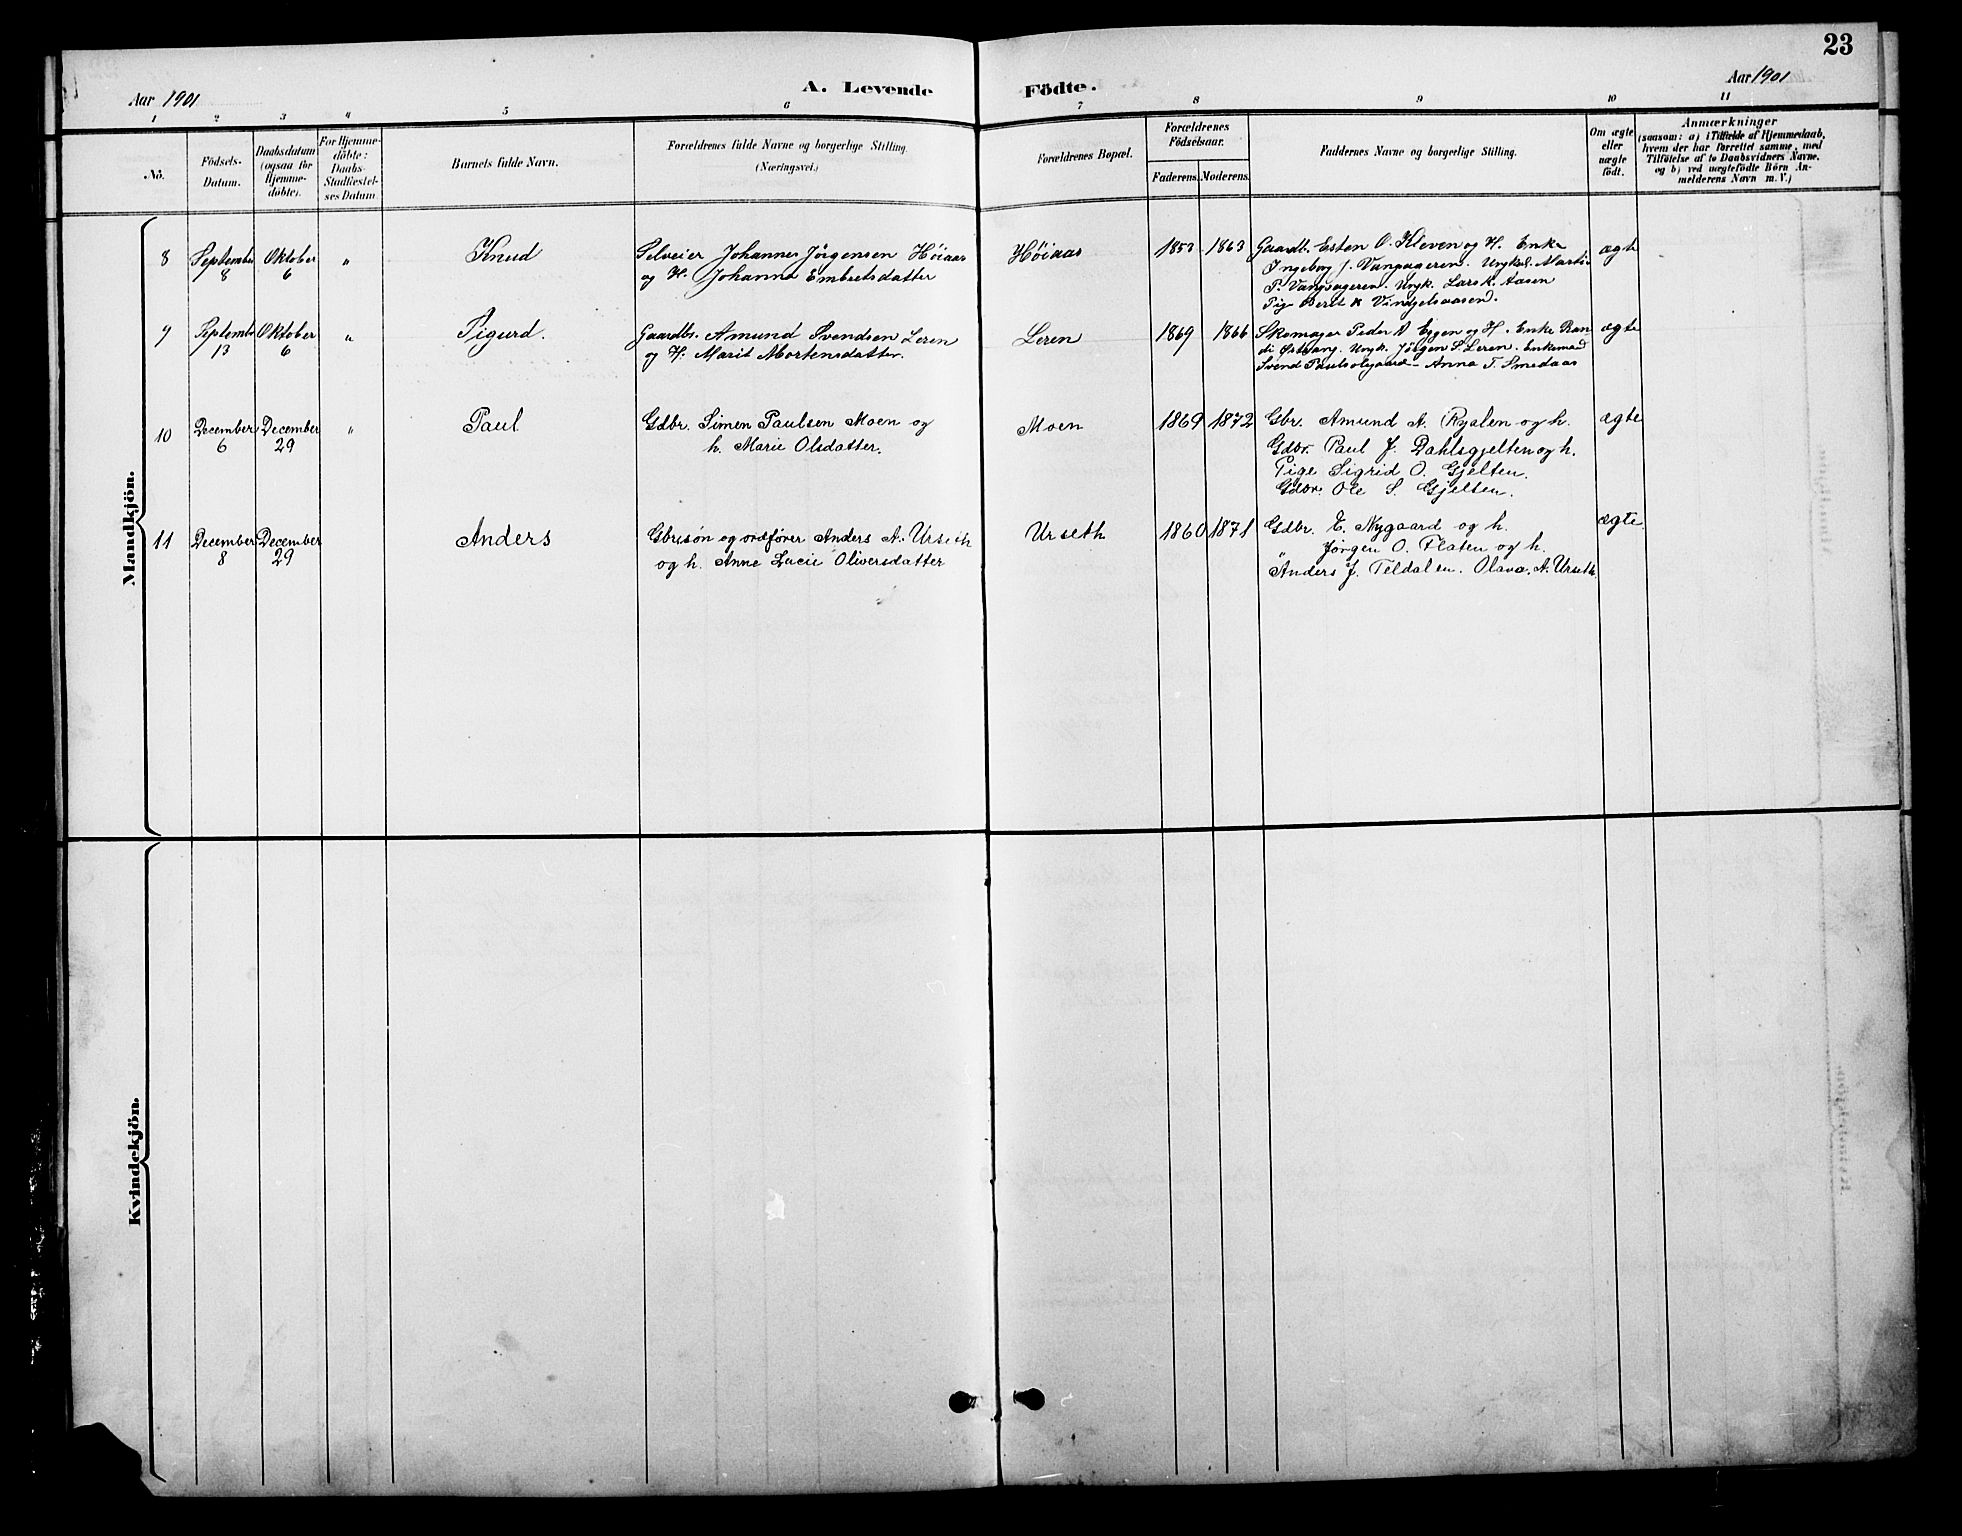 23
Aar 1901
A. Levende Födte.
Aar 1901
1 2 3 4 5 6 7 8 9 10 11
No.
Födsels-
Datum.
Daabsdatum
(ogsaa for
Hjemme-
döbte).
For Hjemme-
döbte:
Daabs-
Stadfæstel-
ses Datum
Barnets fulde Navn.
Forældrenes fulde Navne og borgerlige Stilling.
(Næringsvei.)
Forældrenes Bopæl.
Forældrenes
Födselsaar.
Faderens. Moderens.
Faddernes Navne og borgerlige Stilling.
Om ægte
eller
uægte
födt.
Anmærkninger
(saasom: a) i Tilfælde af Hjemmedaab,
hvem der har forrettet samme, med
Tilföielse af to Daabsvidners Navne,
og b) ved uægtefödte Börn An-
melderens Navn m. V.)
Mandkjön.
8 September 8 Oktober 6 " Knud
Selveier Johannes Jörgensen Höiaas
og H. Johanna Embretsdatter
Höiaas 1853 1863
Gaardb. Esten O. Kleven og H. Enke
Ingeborg J. Vangsgeren. Ungkal. Martin
P. Vangsgeren. Ungk. Lars K. Aasen
Pig Berit K Vingelsaasen.
ægte
9 September 13 Oktober 6 " Sigurd.
Gaardbr. Amund Svendsen Leren
og H. Marit Mortensdatter.
Leren 1869 1866
Skomager Peder D Eggen og H. Enke Ran
di Østvang. Ungk. Jörgen S. Leren. Enkemand
Svend Paulsølgaard - Anna T. Smedaas
ægte
10 December 6 December 29 " Paul
Gdbr. Simen Paulsen Moen og
h. Marie Olsdatter.
Moen 1869 1872
Gbr. Amund A. Ryslen og h.
Gdbr. Paul J. Dahlsgjelten og h.
Pige Sigrid O. Gjelten.
Gdbr. Ole S. Gjelten.
ægte
11 December 8 December 29 Anders
Gbrsøn og ordfører Anders A. Urseth
og h. Anne Lucie Oliversdatter
Urseth 1860 1871
Gdbr. E. Nygaard og h.
" Jørgen O. Floten og h.
Anders J. Teldalen. Olava. A. Urseth.
ægte.
Kvindekjön.